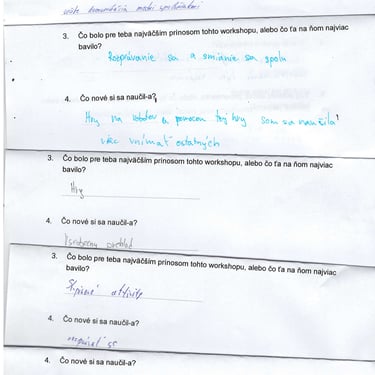 3. Čo bolo pre teba najväčším prínosom tohto workshopu, alebo čo ťa na ňom najviac
bavilo?
Rozprávanie sa a smianie sa spolu
4. Čo nové si sa naučil-a?
Hry na robotov a pomocou tej hry som sa naučila
viac vnímať ostatných
3. Čo bolo pre teba najväčším prínosom tohto workshopu, alebo čo ťa na ňom najviac
bavilo?
Hry
4. Čo nové si sa naučil-a?
3. Čo bolo pre teba najväčším prínosom tohto workshopu, alebo čo ťa na ňom najviac
bavilo?
aktivity
4. Čo nové si sa naučil-a?
4. Čo nové si sa naučil-a?